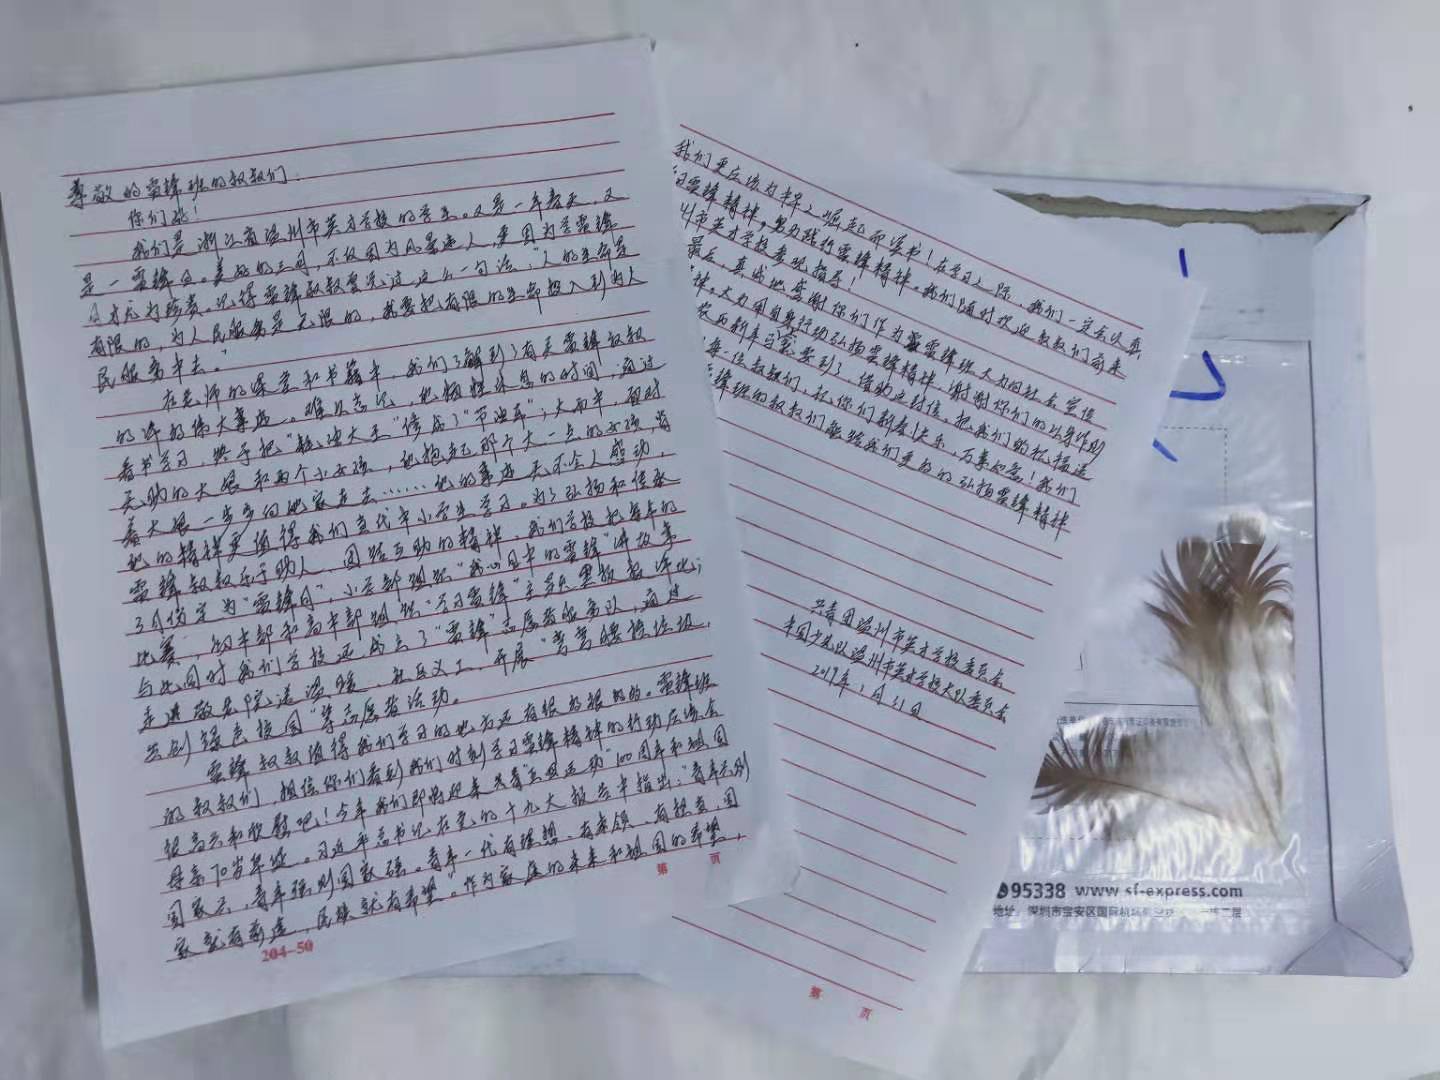 尊敬的雷锋班的叔叔们：
你们好！
我们是浙江省温州市英才学校的学生。又是一年春天，又
是一雷锋月。美好的三月，不仅因为风景迷人，更因为学雷锋
月才尤为珍贵。记得雷锋叔叔曾说过这么一句话："人的生命是
有限的，为人民服务是无限的，我要把有限的生命投入到为人
民服务中去。"
在老师的课堂和书籍中，我们了解到了有关雷锋叔叔
的许多伟大事迹。难以忘记，他牺牲休息的时间，通过
看书学习，终于把"耗油大王"修成了"节油车"；大雨中，面对
无助的大娘和两个小女孩，他抱起那个大一点的女孩，当
着大娘一步步向她家走去……他的事迹无不令人感动，
他的精神更值得我们当代中小学生学习。为了弘扬和传承
雷锋叔叔乐于助人、团结互助的精神，我们学校把每年的
3月份定为"雷锋月"，小学部组织"我心目中的雷锋"讲故事
比赛；初中部和高中部组织"学习雷锋"主题黑板报评比；
与此同时我们学校还成立了"雷锋"志愿者服务队，通过
走进敬老院送温暖、社区义工、开展"弯弯腰捡垃圾，
共创绿色校园"等志愿者活动。
雷锋叔叔值得我们学习的地方还有很多很多的。雷锋班
的叔叔们，相信你们看到我们时刻学习雷锋精神的行动应该会
很高兴和欣慰吧！今年我们即将迎来共青"五四运动"100周年和祖国
母亲70岁华诞。习近平总书记在党的十九大报告中指出："青年兴则
国家兴，青年强则国家强。青年一代有理想、有本领、有担当，国
家就有前途，民族就有希望。"作为家庭的未来和祖国的希望，
204-50
第 页
我们更应该为中华之崛起而读书！在学习之际，我们一定会认真
习雷锋精神，努力践行雷锋精神。我们随时欢迎叔叔们前来
州市英才学校参观指导！
最后，真诚地感谢你们作为雷锋班大力向社会宣传
神，大力用自身行动弘扬雷锋精神，谢谢你们的以身作则
农历新年马上要到了，借助这封信，把我们的祝福送
每一位叔叔们，祝你们新春快乐，万事如意！我们
雷锋班的叔叔们能跟我们更好的弘扬雷锋精神
共青团温州市英才学校委员会
中国少先队温州市英才学校大队委员会
2019年1月31日
第 页
95338 www.sf-express.com
地址：深圳市宝安区国际机场